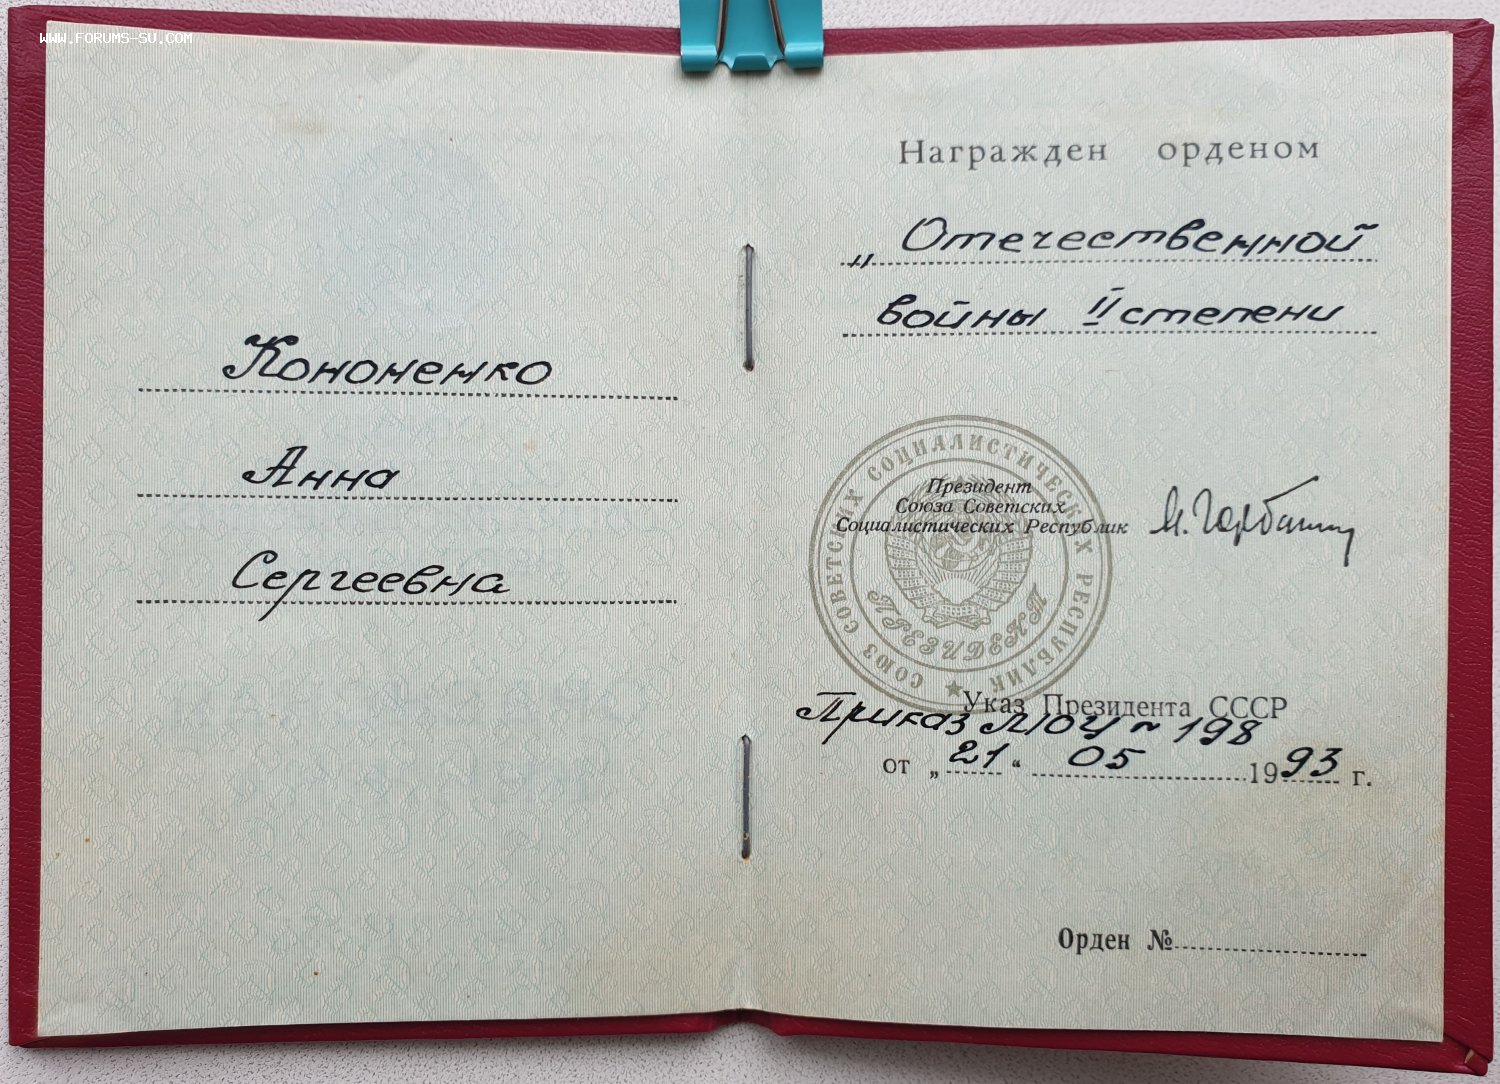 WWW.FORUMS-SU.COM
Кононенко
Анна
Сергеевна
Награжден орденом
„Отечественной
войны II степени
СОЮЗ СОВЕТСКИХ СОЦИАЛИСТИЧЕСКИХ РЕСПУБЛИК
ПРЕЗИДЕНТ
Президент
Союза Советских
Социалистических Республик
М. Горбачев
Указ Президента СССР
Приказ МОУ № 198
от „21“ 05 1993 г.
Орден №